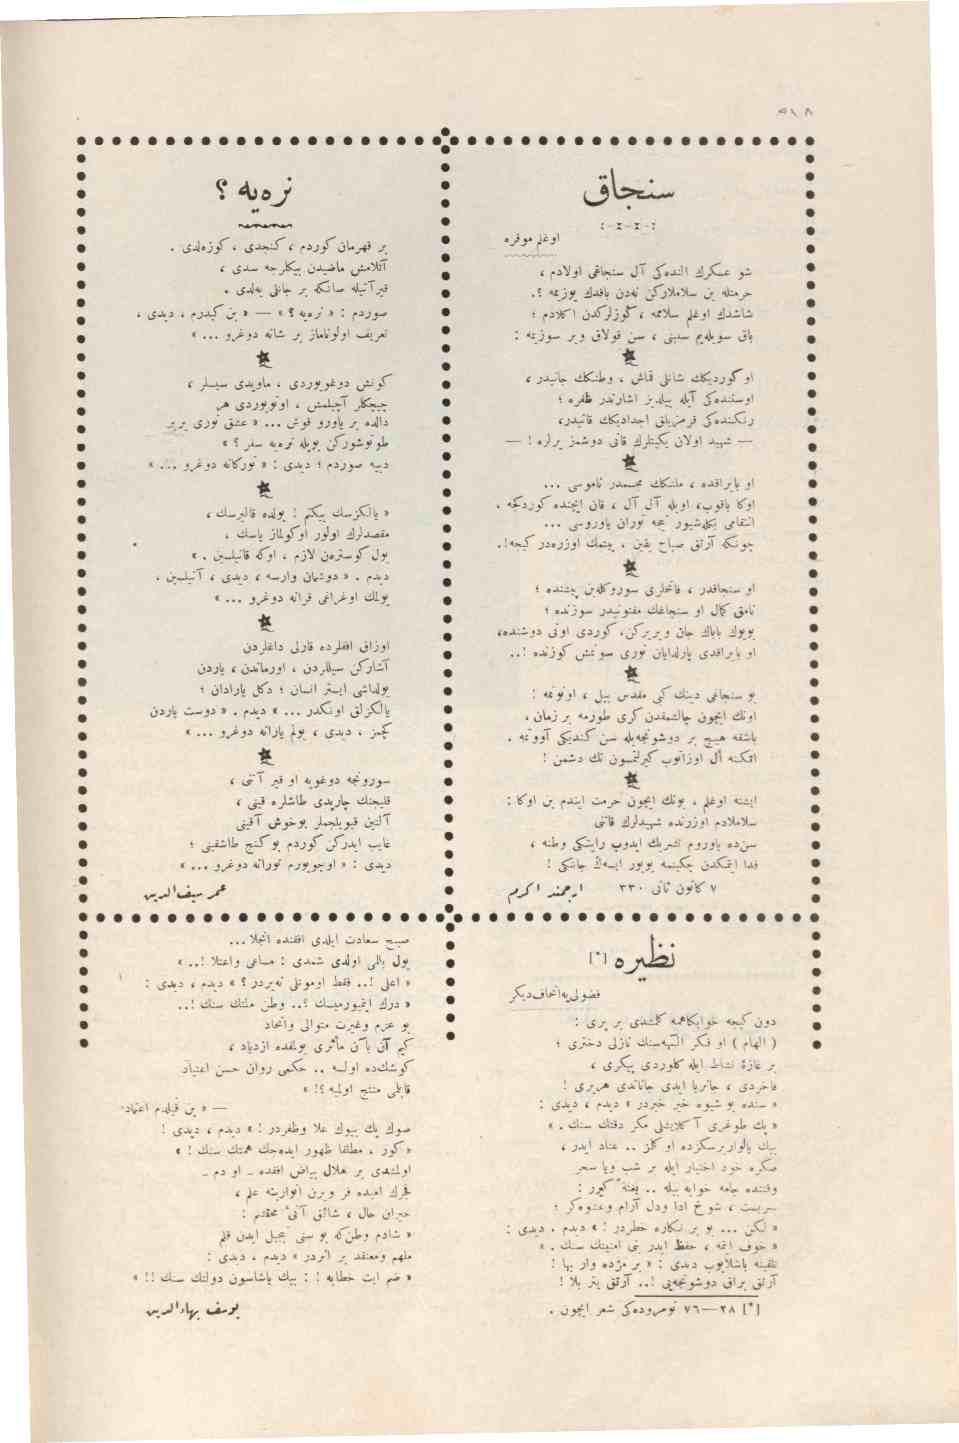 ٥١٨
سنجاق
اوغلم موفره
شو عسكرك النده‌كى آل سنجاقى اولادم ،
حرمتله بن سلاملاركن نه‌دن باقدك يوزيمه ؟.
شاشدك اوغلم سلاممه ، گوزلركدن اكلادم ؛
باق سويله‌يم سببنى ، سن قولاق وير سوزيمه :
او گورديكك شانلى قماش ، وطنكك جانيدر ،
اوستنده‌كى آيله ييلديز اشارتدر ظفره ؛
رنكنده‌كى قرمزيلق اجداديكك قانيدر،
— شهيد اولان يكيتلرك قانى دوشمز يرلره ! —
او بايراقده ، ملتكك مجسمدر ناموسى ...
اوكا باقوب، اويله آل آل ، قان ايچنده كوردكجه .
انتقامى بكله‌شيور نيجه توران ياوروسى ...
چونكه آرتق صباح يقين ، بيتمك اوزره‌در كيجه !.
او سنجاقدر ، فاتحلرى سوروكله‌ين پيشنده ؛
نامق كمال او سنجاغك مفتونيدر سوزنده ؛
بويوك باباك جان ويريركن، كوردى اونى دوشنده،
او بايراقدى يارلدايان نورى سونمش كوزنده !..
بو سنجاغى دينك كبى مقدس بيل ، اونوتمه !
اونك ايچون چاليشمقدن كرى طورمه بر زمان ،
باشقه هيچ بر دوشونجه‌يله سن كنديكى آووتمه .
اتمكنه أل اوزاتوب كيرلتمسون تك دشمن !
ايشته اوغلم ، بونك ايچون حرمت ايتدم بن اوكا :
سلاملادم اوزرنده شهيدلرك قانى
سن‌ده ياوروم تشريك ايدوب رايتكى وطنه ،
فدا ايتمكدن چكينمه يويور ايسه‌ك جانكى !
٧ كانون ثانى ٣٣٠ ارجمند اكرم
نره‌يه ؟
بر قهرمان گوردم ، كنجدى ، كوزه‌لدى .
آكلامش ماضيدن بيكلرجه سدى ،
قيرآتيله صانكه بر جانلى يه‌لدى .
صوردم : « نره‌يه ؟ » — « بن كيدرم ، ديدى ،
تعريف اولوناماز بر شانه دوغرو ... »
كونش دوغويوردى ، ماويدى سيسلر ،
چيچكلر آچيلمش ، اوتويوردى هر
دالده بر ياورو قوش ... « عشق نورى يربر
طوتوشوركن بويله نره‌يه سفر ؟ »
دييه صوردم ؛ ديدى : « توركانه دوغرو ... »
« يالكزسك ييكتم ! يولده قاليرسك ،
مقصدلرك اولور اوكولماز ياسك ،
يول كوسترەن لازم ، اوكه قاتيلسين . »
ديدم . « دوشمان وارسه ، ديدى ، آتيلسين ،
يولك اوغراغى قرانه دوغرو ... »
اوزاق افقلرده قارلى داغلردن
آشاركن سيللردن ، اورماندن ، ياردن
يولداشى ايستر انسان ؛ دكل يارادان ؛
يالكزلق اونكدر ... » ديدم . « دوست ياردن
كچمز ، ديدى ، يولم يارانه دوغرو ... »
سورونجه دوغويه او قير آتنى ،
قليجنك چارپدى طاشلره قينى ،
آلتين قيويلجملر بوخوش آقينى
غايب ايدركن گوردم بوكنج طاشقينى ؛
ديدى : « اوچويورم تورانه دوغرو ... »
عمر سيف‌الدين
نظيره [*]
فضولى‌يه‌اتحاف‌ديكر
دون كيجه خوابكاهمه كلمشدى بر پرى :
( الهام ) او فكر الٓهه‌سنك نازلى دخترى ؛
بر غازۀ نشاط ايله كلاوردى پيكرى ،
فاخردى ، جانربا ايدى جاناندى هربرى !
« سنده بو شيوه خبر خبردر » ديدم ، ديدى :
« يك طوغرى آكلايشلى مكر دقتك سنك . »
بيك يالواريرسكزده او كلز .. عناد ايدر ،
صكره خود اختيار ايله بر شب ويا سحر
وقتنده جامه خوابه بيله .. بغتةً گيرر :
سربست ، شوخ ادا ودل آرام وعشوه‌كر ؛
« لكن ... بو بر نكاره خطردر ! » ديدم . ديدى :
« خوف ايتمه ، حفظ ايدر بنى امنيتك سنك . »
تلقينه باشلايوب ديدى : « بر مژده وار بها !
آرتق براق دوشونجه‌يى !.. آرتق يتر بلا !
[*] ٢٨—٧٦ نومروده‌كى شعر ايچون .
صبح سعادت ايلدى افقنده انجلا ...
يول بللى اولدى شمدى : مساعى واعتلا !.. »
« اعلى !.. فقط اومونلى نه‌يردر ؟ » ديدم ، ديدى :
« درك ايتميورميسك ؟.. وطن ملتك سنك !..
بو عزم وغيرت متوالى واتحاد
كيم آن بآن مأثرى يولمقده ازدياد ،
كوشك‌ده اولسه .. حكمى روان حسن اعتياد
قابلى منتج اوليه ؟! »
— « بن قيلدم اعتماد.
صوك يك بيوك علا وظفردر ! » ديدم ، ديدى !
« كور ، مطلقا ظهور ايده‌جك همتك سنك ! »
اولمشدى بر هلال بياض افقده ـ او دم ـ
فجرك اميده فر ويرن انواريته علم ،
حيران حال ، شائق آتئ محتشم :
« شادم وطن‌كه بو سنى تبجيل ايدن قلم
ملهم ومعتقد بر اثردر » ديدم ، ديدى :
« ضم ايت خطابه ! : بيك ياشاسون دولتك سنك !! »
يوسف بهاءالدين